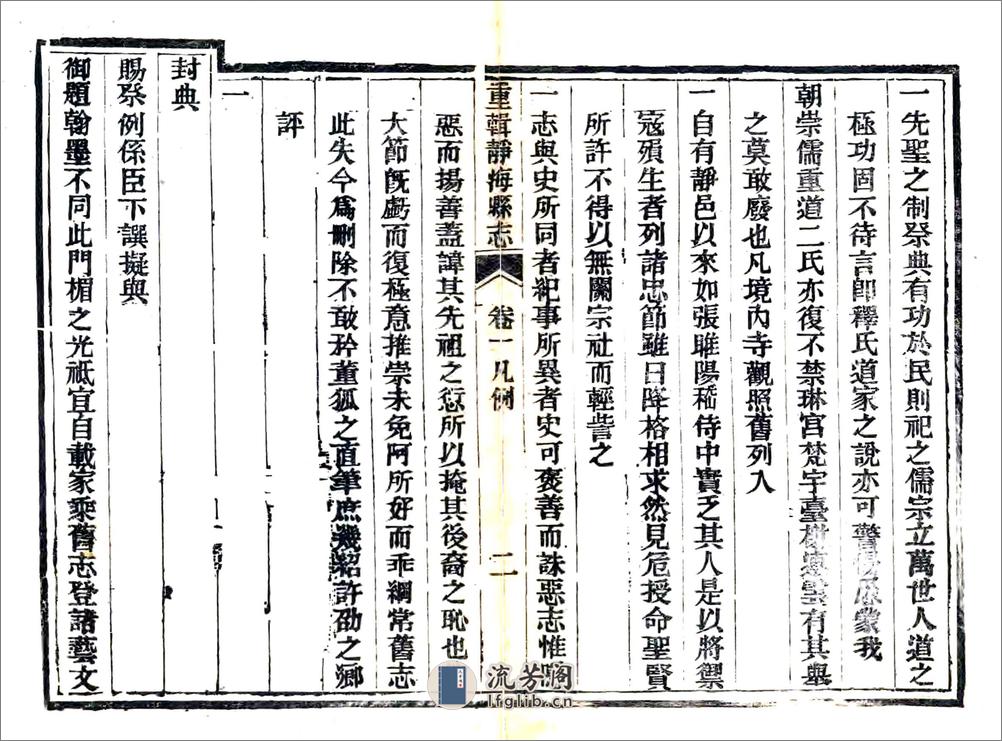 一先聖之制祭典有功於民則祀之儒宗立萬世人道之
極功固不待言卽釋氏道家之說亦可警愚蒙我
朝崇儒重道二氏亦復不禁琳宮梵宇臺有其舉
之莫敢廢也凡境內寺觀照舊列入
一自有靜邑以來如張睢陽嵇侍中實乏其人是以將禦
寇殞生者列諸忠節雖曰降格相求然見危授命聖賢
所許不得以無關宗社而輕訾之
重輯靜海縣志 卷一凡例 二
一志與史所同者紀事所異者史可褒善而誅惡志惟
惡而揚善蓋諱其先祖之愆所以掩其後裔之恥也
大節旣虧而復極意推崇未免阿所好而乖綱常舊志
此失今爲刪除不敢矜董狐之直筆庶幾紹許劭之鄉
評
一
封典
賜祭例係臣下譔擬與
御題翰墨不同此門楣之光祇宜自載家乘舊志登諸藝文
流芳阁
lfglib.cn